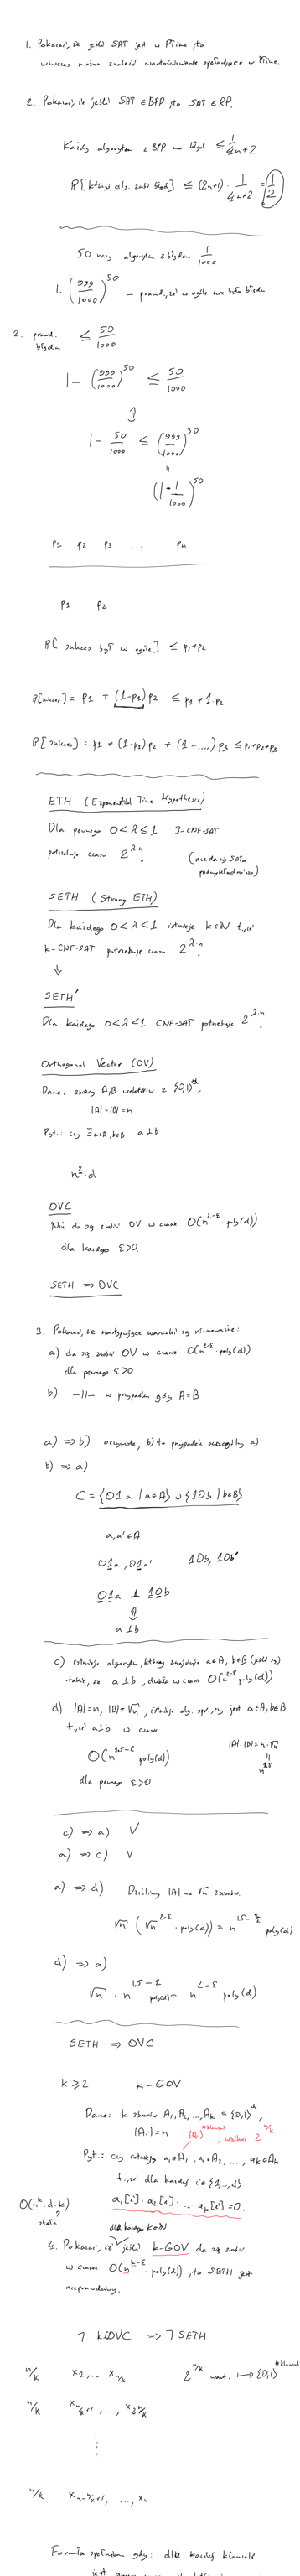 1. Pokazać, że jeśli SAT jest w PTime, to
wówczas można znaleźć wartościowanie spełniające w PTime.
2. Pokazać, że jeśli SAT ∈ BPP, to SAT ∈ RP.
Każdy algorytm z BPP ma błąd ≤ 1/(4n+2)
P[któryś alg. zrobi błąd] ≤ (2n+1) · 1/(4n+2) = 1/2
50 razy algorytm z błędem 1/1000
1. (999/1000)^50 – prawd., że w ogóle nie było błędu
2. prawd. błędu ≤ 50/1000
1 - (999/1000)^50 ≤ 50/1000
⇕
1 - 50/1000 ≤ (999/1000)^50
=
(1 - 1/1000)^50
p1 p2 p3 .. pn
p1 p2
P[sukces był w ogóle] ≤ p1+p2
P[sukces] = p1 + (1-p1)p2 ≤ p1 + 1·p2
P[sukces] = p1 + (1-p1)p2 + (1-....)p3 ≤ p1+p2+p3
ETH (Exponential Time Hypothesis)
Dla pewnego 0<λ≤1 3-CNF-SAT
potrzebuje czasu 2^(λ·n).
SETH (Strong ETH)
Dla każdego 0<λ<1 istnieje k∈N t.że
k-CNF-SAT potrzebuje czasu 2^(λ·n).
⇓
SETH'
Dla każdego 0<λ<1 CNF-SAT potrzebuje 2^(λ·n).
Orthogonal Vector (OV)
Dane: zbiory A,B wektorów z {0,1}^d,
|A|=|B|=n
Pyt.: czy ∃ a∈A, b∈B a⊥b
n²·d
OVC
Nie da się zrobić OV w czasie O(n^(2-ε)·poly(d))
dla każdego ε>0.
SETH ⇒ OVC
3. Pokazać, że następujące warunki są równoważne:
a) da się zrobić OV w czasie O(n^(2-ε)·poly(d))
dla pewnego ε>0
b) -||- w przypadku gdy A=B
a) ⇒ b) oczywiste, b) to przypadek szczególny a)
b) ⇒ a)
C = {01a | a∈A} ∪ {10b | b∈B}
a,a'∈A
01a, 01a' 10b, 10b'
01a ⊥ 10b
⇕
a⊥b
c) istnieje algorytm, który znajduje a∈A, b∈B (jeśli są)
takie, że a⊥b, działa w czasie O(n^(2-ε) poly(d))
d) |A|=n, |B|=√n, istnieje alg. spr., czy jest a∈A, b∈B
t.że a⊥b w czasie
O(n^(1.5-ε) poly(d))
|A|·|B| = n·√n
=
n^1.5
dla pewnego ε>0
c) ⇒ a) V
a) ⇒ c) V
a) ⇒ d) Dzielimy |A| na √n zbiorów.
√n (√n^(2-ε)·poly(d)) = n^(1.5-ε/2) poly(d)
d) ⇒ a)
√n · n^(1.5-ε) poly(d) = n^(2-ε) poly(d)
SETH ⇒ OVC
k ≥ 2 k-GOV
Dane: k zbiorów A1, A2, ..., Ak ⊆ {0,1}^d,
|Ai|=n {0,1}^#klauzul, wielkość 2^(n/k)
Pyt.: czy istnieją a1∈A1, a2∈A2, ..., ak∈Ak
t.że dla każdej i∈{1,...,d}
a1[i]·a2[i]·...·ak[i]=0.
O(n^k·d·k)
stała?
dla każdego k∈N
4. Pokazać, że jeśli k-GOV da się zrobić
w czasie O(n^(k-ε)·poly(d)), to SETH jest
nieprawdziwy.
¬ k-OVC ⇒ ¬ SETH
n/k x1, .. x_(n/k) 2^(n/k) wart. ↦ {0,1}^#klauzul
n/k x_(n/k+1), ..., x_(2n/k)
⋮
n/k x_(n-n/k+1), ..., xn
Formuła spełniona gdy: dla każdej klauzuli